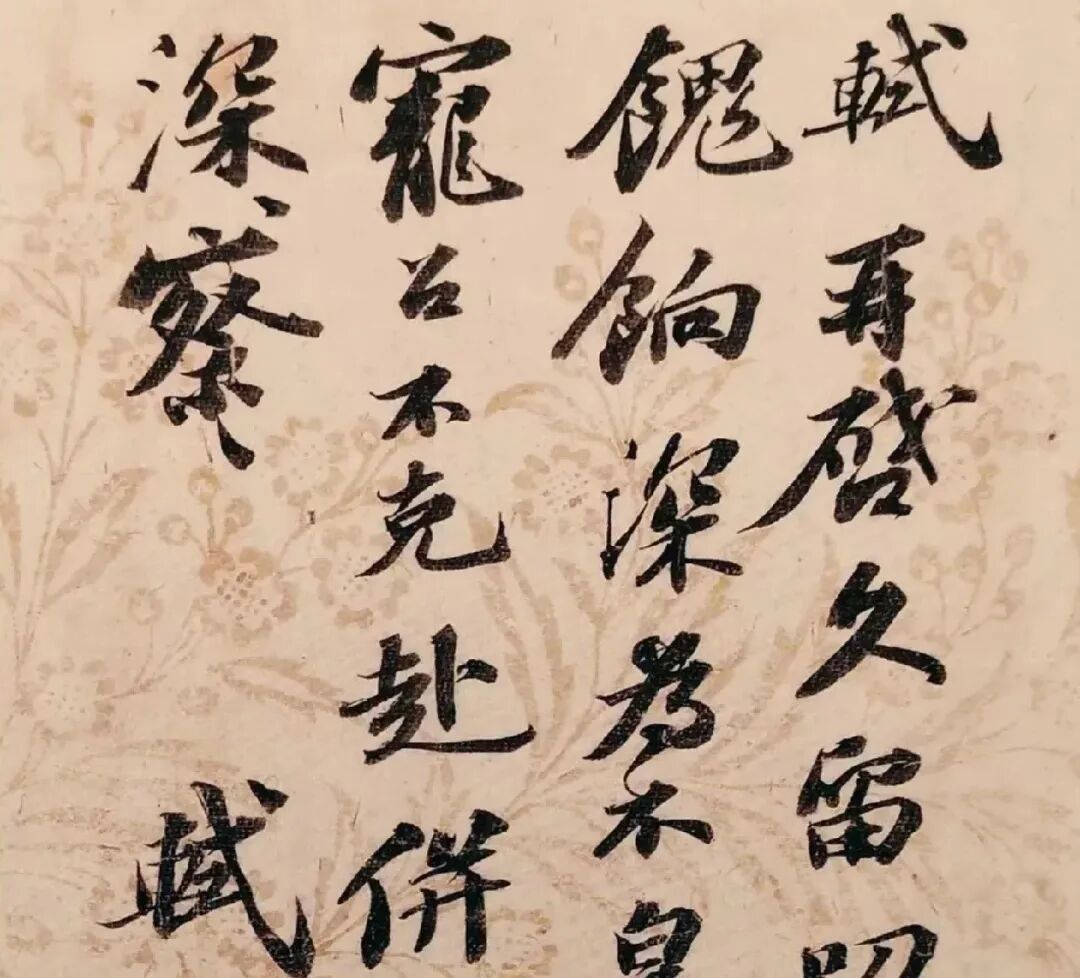 軾再啓久留叨
餽餉深為不皇
寵召不克赴併
深察軾